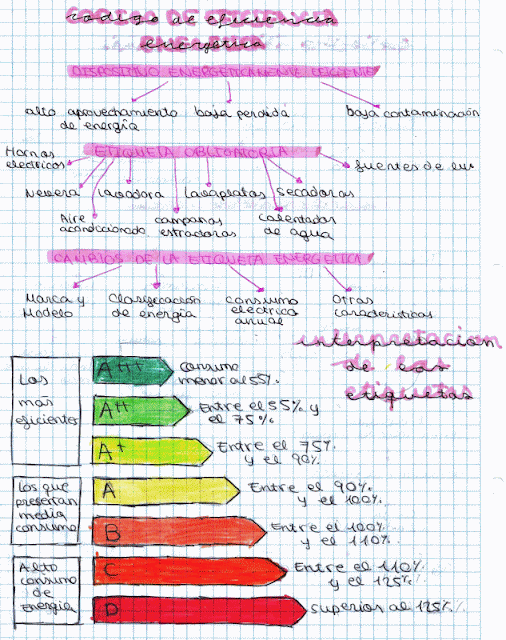 codigo de eficiencia
energética
DISPOSITIVO ENERGETICAMENTE EFICIENTE
alto aprovechamiento
de energía
baja perdida
baja contaminación
ETIQUETA OBLIGATORIA
Hornos
electricos
fuentes de luz
Nevera
lavadora
Lavaplatos
Secadoras
Aire
acondicionado
campanas
extractoras
Calentador
de agua
CAMBIOS DE LA ETIQUETA ENERGETICA
Marca y
Modelo
Clasificación
de energía
Consumo
electrico
anual
Otras
características.
interpretacion
de las
etiquetas
Los
mas
eficientes
A+++
Consumo
menor al 55%.
A++
Entre el 55% y
el 75%
A+
Entre el 75%
y el 90%
Los que
presentan
media
consumo
A
Entre el 90%
y el 100%
B
Entre el 100%
y el 110%
Alto
consumo
de
Energía
C
Entre el 110%
y el 125%
D
Superior al 125%